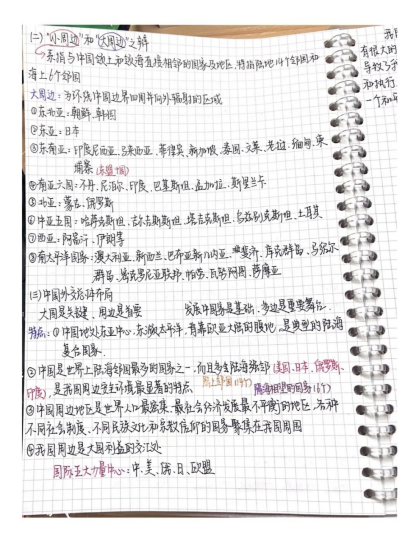 (二)"小周边"和"大周边"之辩
系指与中国领土和领海直接相邻的国家及地区,特指陆地14个邻国和
海上6个邻国
大周边:为环绕中国边界四周并向外辐射的区域
①东北亚:朝鲜、韩国
②东亚:日本
③东南亚:印度尼西亚、马来西亚、菲律宾、新加坡、泰国、文莱、老挝、缅甸、柬
埔寨(东盟十国)
④南亚六国:不丹、尼泊尔、印度、巴基斯坦、孟加拉、斯里兰卡
⑤北亚:蒙古、俄罗斯
⑥中亚五国:哈萨克斯坦、吉尔吉斯斯坦、塔吉克斯坦、乌兹别克斯坦、土耳其
⑦西亚:阿富汗、伊朗等
⑧南太平洋国家:澳大利亚、新西兰、巴布亚新几内亚、斐济、库克群岛、马绍尔
群岛、密克罗尼亚联邦、帕劳、瓦努阿图、萨摩亚
(三)中国外交总体布局
大国是关键、周边是首要 发展中国家是基础、多边是重要舞台
特点:①中国地处东亚中心,东濒太平洋,背靠欧亚大陆的腹地,是典型的陆海
复合国家.
②中国是世界上陆海邻国最多的国家之一,而且多有陆海强邻(美国、日本、俄罗斯、
印度),是我国周边安全环境最显著的特点 陆上邻国(14个) 隔海相望的国家(6个)
③中国周边地区是世界人口最密集、最社会经济发展最不平衡的地区,各种
不同社会制度、不同民族文化和宗教信仰的国家聚集在我国周围
④我国周边是大国利益的交汇处
国际五大力量中心:中、美、俄、日、欧盟
我
有很大的
导致
和执行
一个和